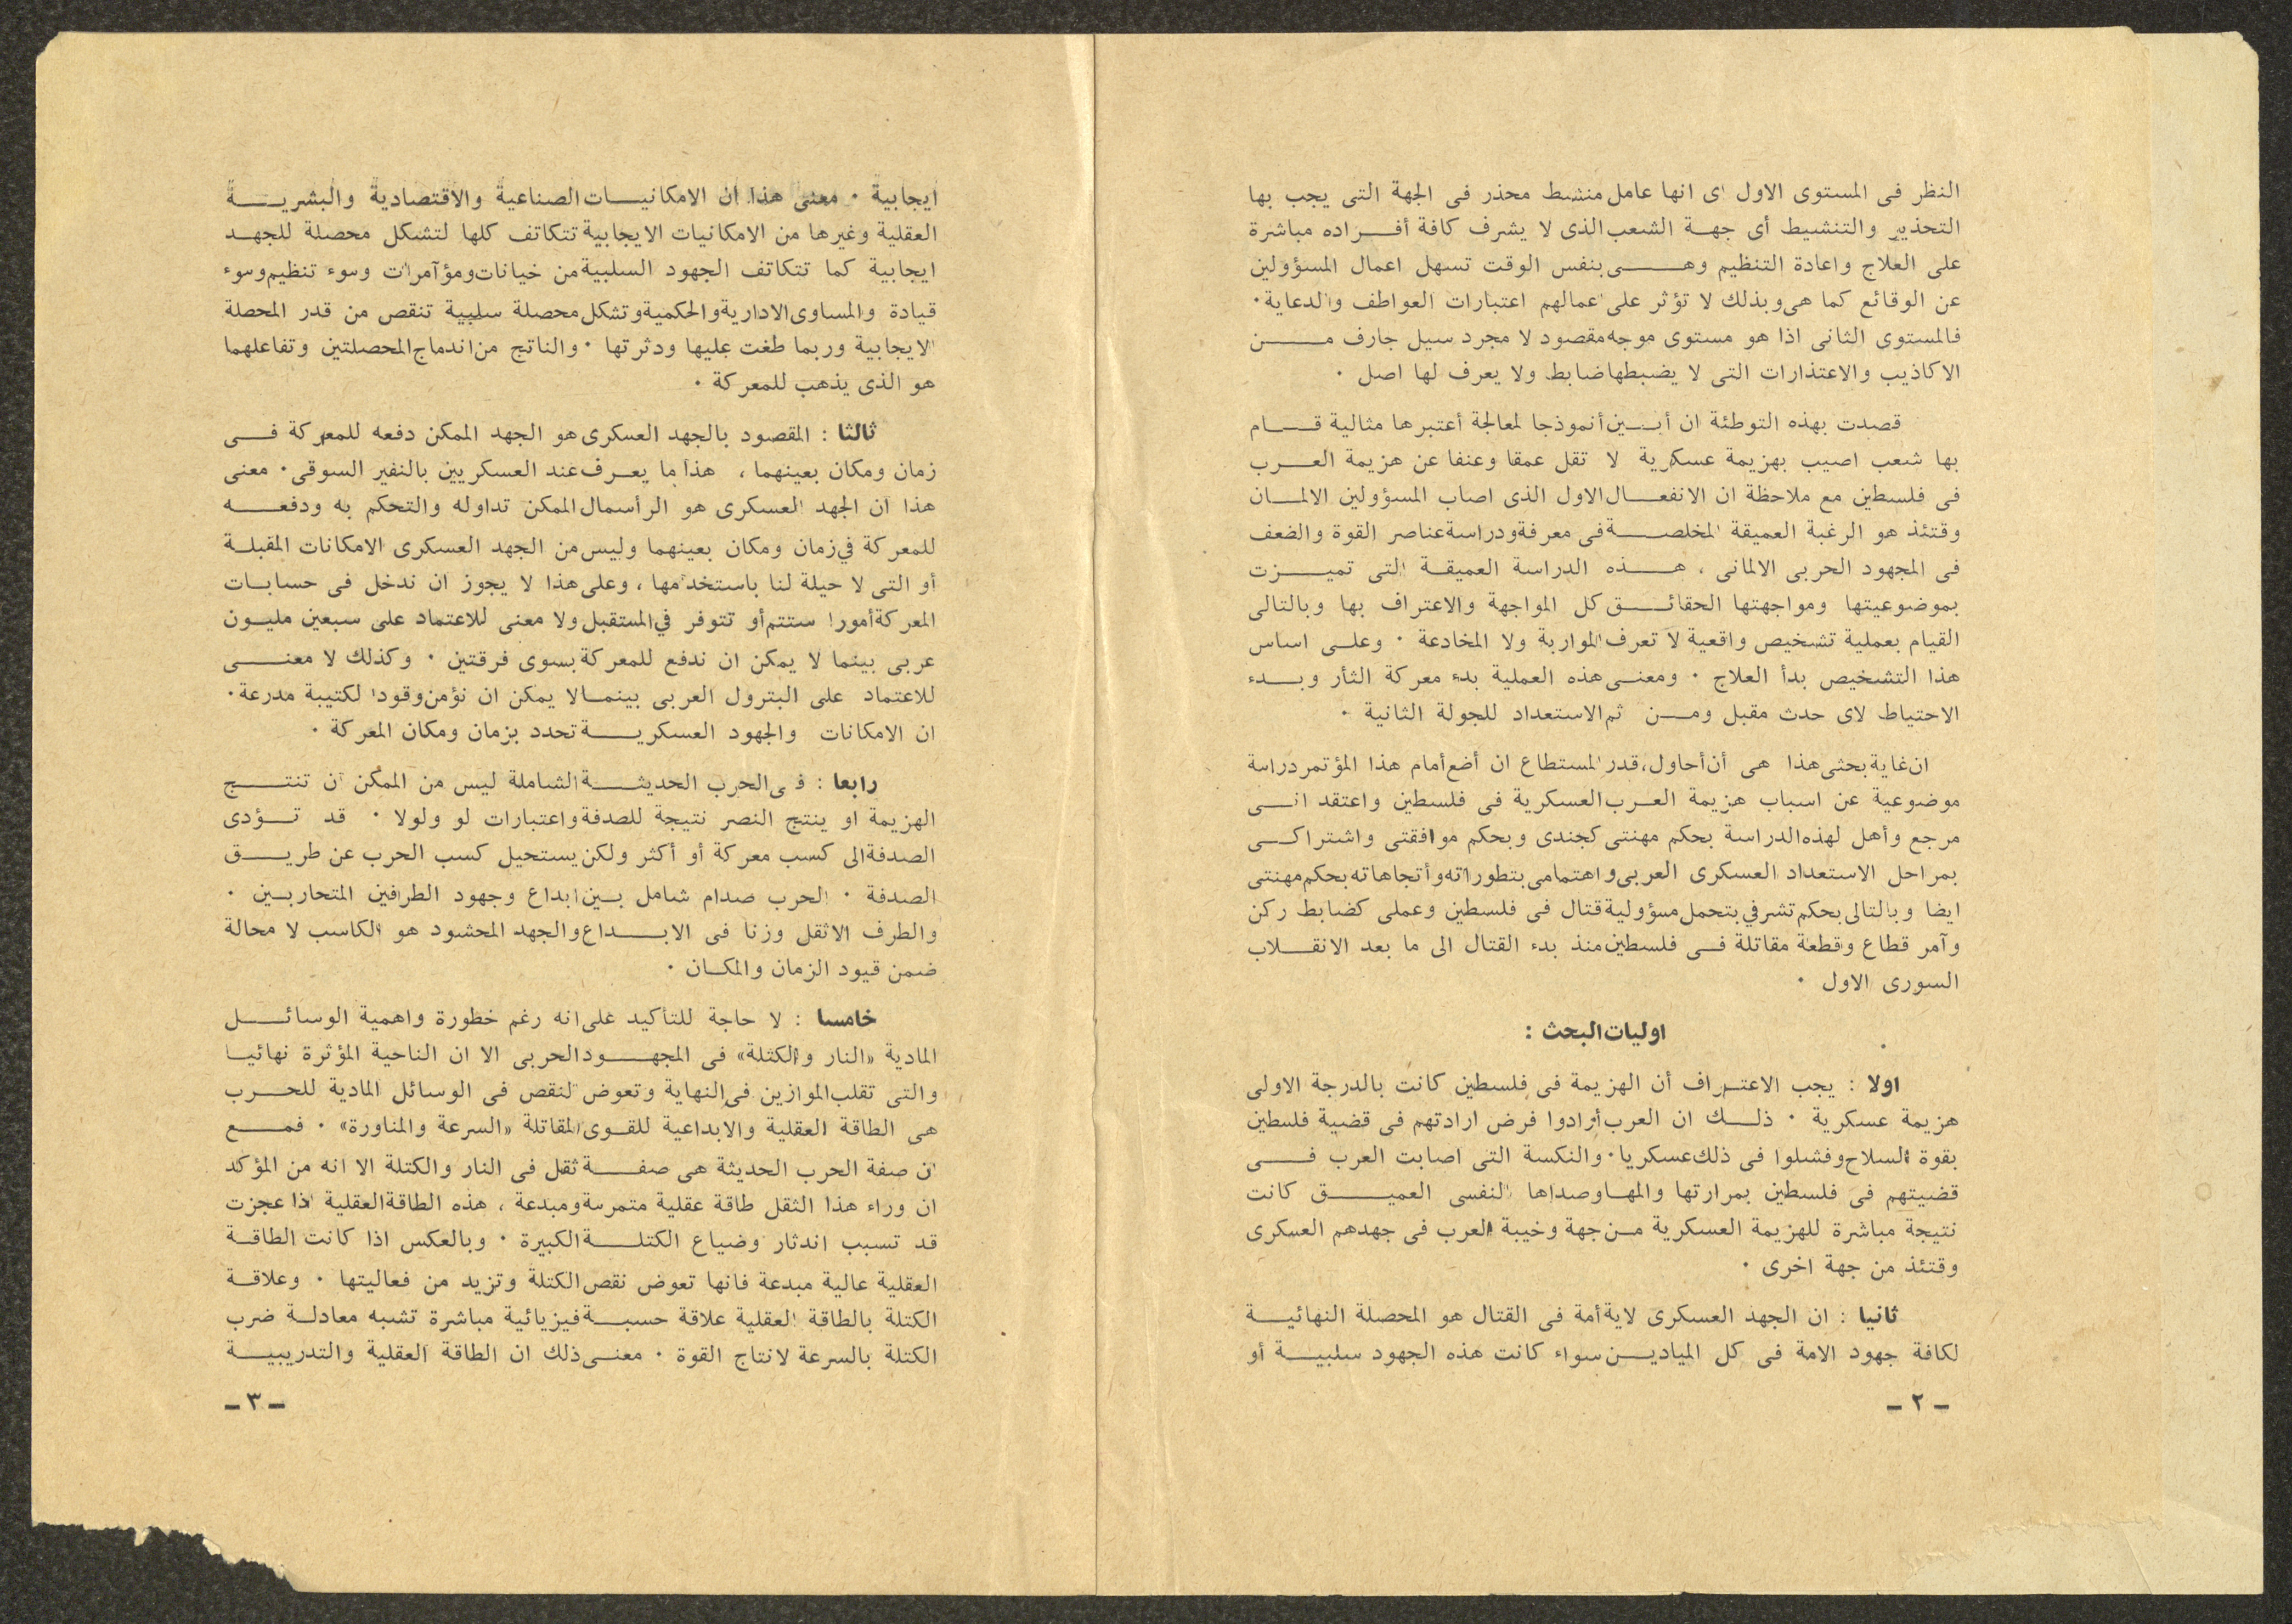 النظر فى المستوى الاول اى انها عامل منشط محذر فى الجهة التى يجب بها
التحذير والتنشيط أى جهة الشعب الذى لا يشرف كافة أفراده مباشرة
على العلاج واعادة التنظيم وهى بنفس الوقت تسهل اعمال المسؤولين
عن الوقائع كما هى وبذلك لا تؤثر على اعمالهم اعتبارات العواطف والدعاية .
فالمستوى الثانى اذا هو مستوى موجه مقصود لا مجرد سيل جارف من
الاكاذيب والاعتذارات التى لا يضبطها ضابط ولا يعرف لها اصل .
قصدت بهذه التوطئة ان أبين أنموذجا لمعالجة أعتبرها مثالية قام
بها شعب اصيب بهزيمة عسكرية لا تقل عمقا وعنفا عن هزيمة العرب
فى فلسطين مع ملاحظة ان الانفعال الاول الذى اصاب المسؤولين الالمان
وقتئذ هو الرغبة العميقة المخلصة فى معرفة ودراسة عناصر القوة والضعف
فى المجهود الحربى الالمانى ، هذه الدراسة العميقة التى تميزت
بموضوعيتها ومواجهتها الحقائق كل المواجهة والاعتراف بها وبالتالى
القيام بعملية تشخيص واقعية لا تعرف المواربة ولا المخادعة . وعلى اساس
هذا التشخيص بدأ العلاج . ومعنى هذه العملية بدء معركة الثأر وبدء
الاحتياط لاى حدث مقبل ومن ثم الاستعداد للجولة الثانية .
ان غاية بحثى هذا هى أن أحاول، قدر المستطاع ان أضع أمام هذا المؤتمر دراسة
موضوعية عن اسباب هزيمة العرب العسكرية فى فلسطين واعتقد انى
مرجع وأهل لهذه الدراسة بحكم مهنتى كجندى وبحكم موافقتى واشتراكى
بمراحل الاستعداد العسكرى العربى واهتمامى بتطوراته وأتجاهاته بحكم مهنتى
ايضا وبالتالى بحكم تشرفي بتحمل مسؤولية قتال فى فلسطين وعملى كضابط ركن
وآمر قطاع وقطعة مقاتلة فى فلسطين منذ بدء القتال الى ما بعد الانقلاب
السورى الاول .
اوليات البحث :
اولا : يجب الاعتراف أن الهزيمة فى فلسطين كانت بالدرجة الاولى
هزيمة عسكرية . ذلك ان العرب أرادوا فرض ارادتهم فى قضية فلسطين
بقوة السلاح وفشلوا فى ذلك عسكريا . والنكسة التى اصابت العرب فى
قضيتهم فى فلسطين بمرارتها والمها وصداها النفسى العميق كانت
نتيجة مباشرة للهزيمة العسكرية من جهة وخيبة العرب فى جهدهم العسكرى
وقتئذ من جهة اخرى .
ثانيا : ان الجهد العسكرى لاية أمة فى القتال هو المحصلة النهائية
لكافة جهود الامة فى كل الميادين سواء كانت هذه الجهود سلبية أو
– ٢ –
ايجابية . معنى هذا ان الامكانيات الصناعية والاقتصادية والبشرية
العقلية وغيرها من الامكانيات الايجابية تتكاتف كلها لتشكل محصلة للجهد
ايجابية كما تتكاتف الجهود السلبية من خيانات ومؤآمرات وسوء تنظيم وسوء
قيادة والمساوى الادارية والحكمية وتشكل محصلة سلبية تنقص من قدر المحصلة
الايجابية وربما طغت عليها ودثرتها . والناتج من اندماج المحصلتين وتفاعلهما
هو الذى يذهب للمعركة .
ثالثا : المقصود بالجهد العسكرى هو الجهد الممكن دفعه للمعركة فى
زمان ومكان بعينهما ، هذا ما يعرف عند العسكريين بالنفير السوقى . معنى
هذا ان الجهد العسكرى هو الرأسمال الممكن تداوله والتحكم به ودفعه
للمعركة في زمان ومكان بعينهما وليس من الجهد العسكرى الامكانات المقبلة
أو التى لا حيلة لنا باستخدامها ، وعلى هذا لا يجوز ان ندخل فى حسابات
المعركة أمورا ستتم أو تتوفر في المستقبل ولا معنى للاعتماد على سبعين مليون
عربى بينما لا يمكن ان ندفع للمعركة بسوى فرقتين . وكذلك لا معنى
للاعتماد على البترول العربى بينما لا يمكن ان نؤمن وقودا لكتيبة مدرعة .
ان الامكانات والجهود العسكرية تحدد بزمان ومكان المعركة .
رابعا : فى الحرب الحديثة الشاملة ليس من الممكن أن تنتج
الهزيمة او ينتج النصر نتيجة للصدفة واعتبارات لو ولولا . قد تؤدى
الصدفة الى كسب معركة أو أكثر ولكن يستحيل كسب الحرب عن طريق
الصدفة . الحرب صدام شامل بين ابداع وجهود الطرفين المتحاربين .
والطرف الاثقل وزنا فى الابداع والجهد المحشود هو الكاسب لا محالة
ضمن قيود الزمان والمكان .
خامسا : لا حاجة للتأكيد على انه رغم خطورة واهمية الوسائل
المادية «النار والكتلة» فى المجهود الحربى الا ان الناحية المؤثرة نهائيا
والتى تقلب الموازين فى النهاية وتعوض النقص فى الوسائل المادية للحرب
هى الطاقة العقلية والابداعية للقوى المقاتلة «السرعة والمناورة» . فمع
ان صفة الحرب الحديثة هى صفة ثقل فى النار والكتلة الا انه من المؤكد
ان وراء هذا الثقل طاقة عقلية متمرسة ومبدعة ، هذه الطاقة العقلية اذا عجزت
قد تسبب اندثار وضياع الكتلة الكبيرة . وبالعكس اذا كانت الطاقة
العقلية عالية مبدعة فانها تعوض نقص الكتلة وتزيد من فعاليتها . وعلاقة
الكتلة بالطاقة العقلية علاقة حسبة فيزيائية مباشرة تشبه معادلة ضرب
الكتلة بالسرعة لانتاج القوة . معنى ذلك ان الطاقة العقلية والتدريبية
– ٣ –